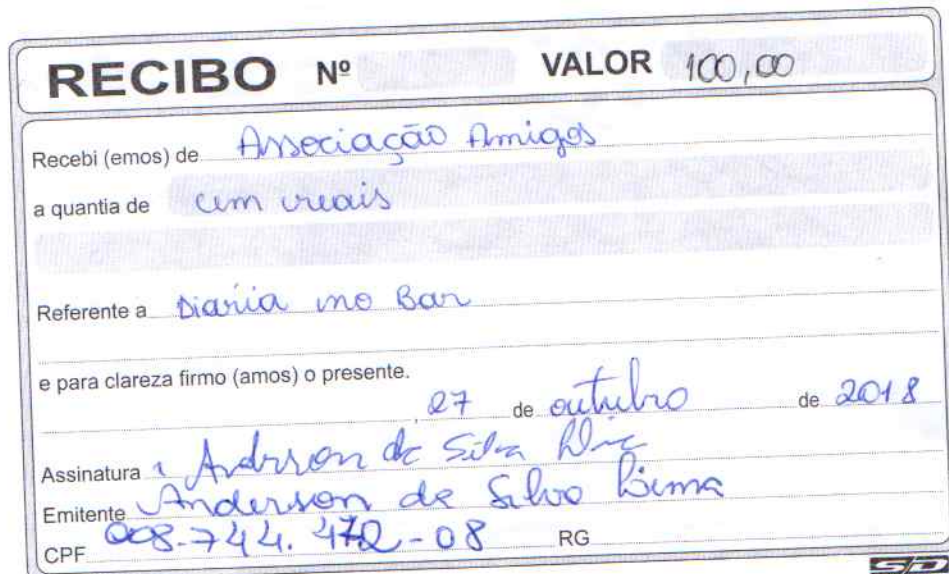 RECIBO Nº VALOR 100,00
Recebi (emos) de Associação Amigos
a quantia de cem reais
Referente a Diaria no Bar
e para clareza firmo (amos) o presente.
27 de outubro de 2018
Assinatura Anderson da Silva
Emitente Anderson da Silva Lima
CPF 008-744.472-08 RG